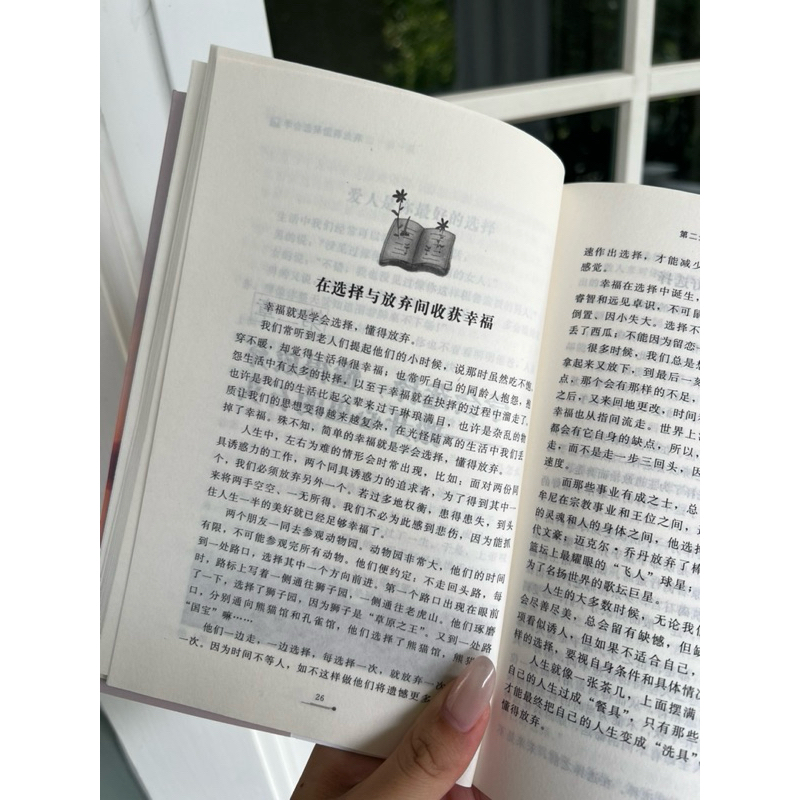 在选择与放弃间收获幸福
幸福就是学会选择，懂得放弃。
我们常听到老人们提起他们的小时候，说那时虽然吃不饱
穿不暖，却觉得生活得很幸福；也常听自己的同龄人抱怨，抱
怨生活中有太多的抉择，以至于幸福就在抉择的过程中溜走了。
也许是我们的生活比起父辈来过于琳琅满目，也许是杂乱的物
质让我们的思想变得越来越复杂，在光怪陆离的生活中我们丢
掉了幸福。殊不知，简单的幸福就是学会选择，懂得放弃。
人生中，左右为难的情形会时常出现，比如：面对两份同
具诱惑力的工作，两个同具诱惑力的追求者，为了得到其中一
个，我们必须放弃另外一个。若过多地权衡，患得患失，到头
来将两手空空、一无所得。我们不必为此感到悲伤，因为能抓
住人生一半的美好就已经足够幸福了。
两个朋友一同去参观动物园。动物园非常大，他们的时间
有限，不可能参观完所有动物。他们便约定：不走回头路，每
到一处路口，选择其中一个方向前进。第一个路口出现在眼前
时，路标上写着一侧通往狮子园，一侧通往老虎山。他们琢磨
了一下，选择了狮子园，因为狮子是“草原之王”。又到一处路
口，分别通向熊猫馆和孔雀馆，他们选择了熊猫馆，熊猫
“国宝”嘛……
他们一边走，一边选择，每选择一次，就放弃一次
一次。因为时间不等人，如不这样做他们将遗憾更多
26
第二
速作出选择，才能减少
感觉。
幸福在选择中诞生，
睿智和远见卓识，不可鼠
倒置、因小失大。选择不
丢了西瓜；不能因为留恋
很多时候，我们总是想
拿起来又放下，到最后一刻
点：那个会有那样的不足，
之后，又来回地更改，时间
幸福也从指间流走。世界上
都会有它自身的缺点。所以，
走，而不是走一步三回头，因
速度。
而那些事业有成之士，总
牟尼在宗教事业和王位之间，
的灵魂和人的身体之间，他选择
代文豪；迈克尔·乔丹放弃了棒
篮坛上最耀眼的“飞人”球星；
为了名扬世界的歌坛巨星。
人生的大多数时候，无论我们
会尽善尽美，总会留有缺憾，但缺
项看似诱人，但如果不适合自己，
样的选择，要视自身条件和具体情况
人生就像一张茶几，上面摆满
自己的人生过成“餐具”，只有那些
才能最终把自己的人生变成“洗具”
懂得放弃。